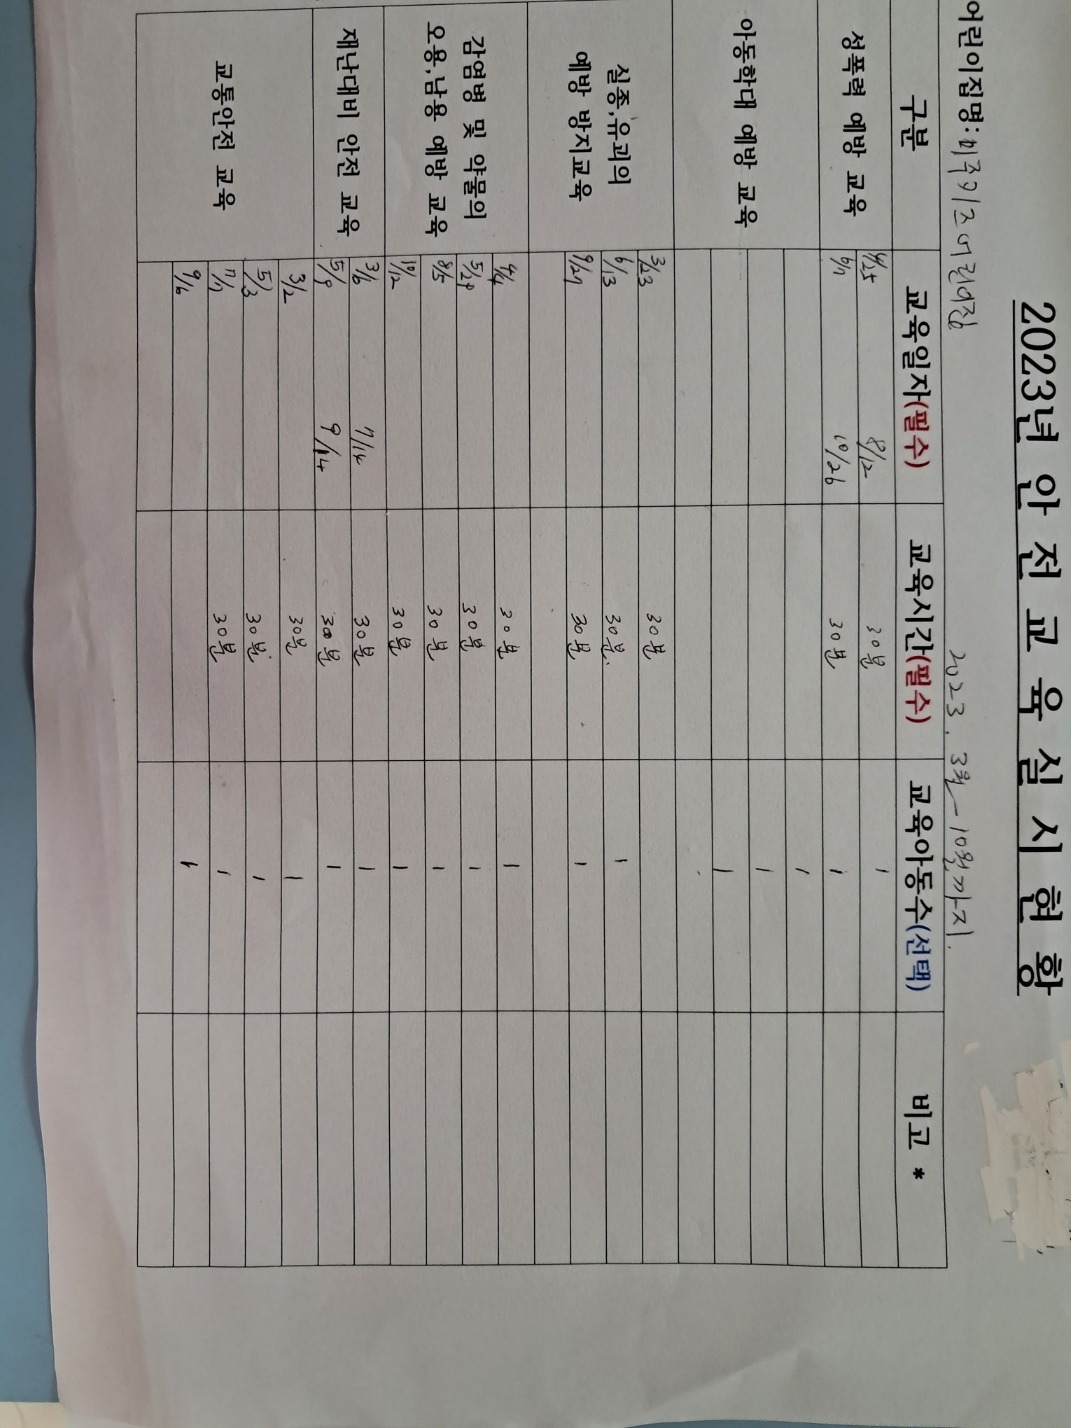 2023년 안 전 교 육 실 시 현 황
어린이집명: 어린이집 2023. 3월 - 10월까지.
구분 교육일자(필수) 교육시간(필수) 교육아동수(선택) 비고 *
성폭력 예방 교육
4/25 8/12 30분 1
6/7 10/26 30분 1
아동학대 예방 교육
1
1
1
실종,유괴의
예방 방지교육
3/23 30분
6/13 30분. 1
9/27 30분 1
감염병 및 약물의
오용,남용 예방 교육
4/4 30분 1
5/29 30분 1
8/5 30분 1
10/2 30분 1
재난대비 안전 교육
3/6 7/14 30분 1
5/9 9/14 30분 1
교통안전 교육
3/2 30분 1
5/3 30분 1
7/7 30분 1
9/6